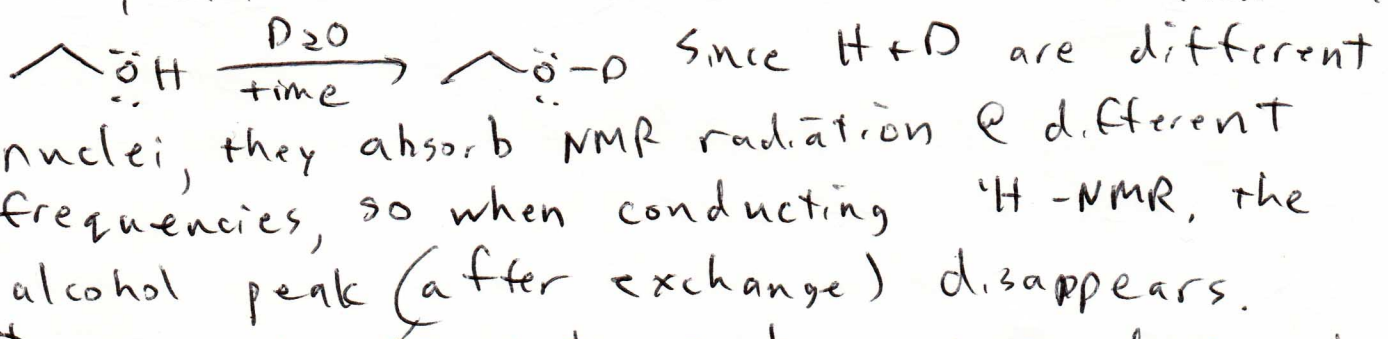 ÖH D2O time Ö-D Since H + D are different
nuclei, they absorb NMR radiation @ different
frequencies, so when conducting ¹H-NMR, the
alcohol peak (after exchange) disappears.